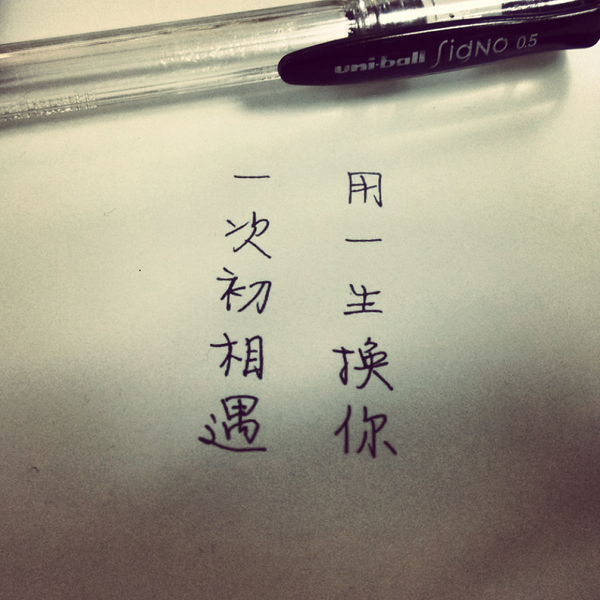 uni-ball Signo 0.5
用一生換你
一次初相遇